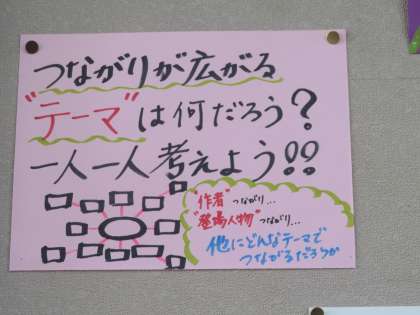 つながりが広がる
"テーマ"は何だろう?
一人一人考えよう!!
"作者"つながり...
"登場人物"つながり...
他にどんなテーマで
つながるだろうか